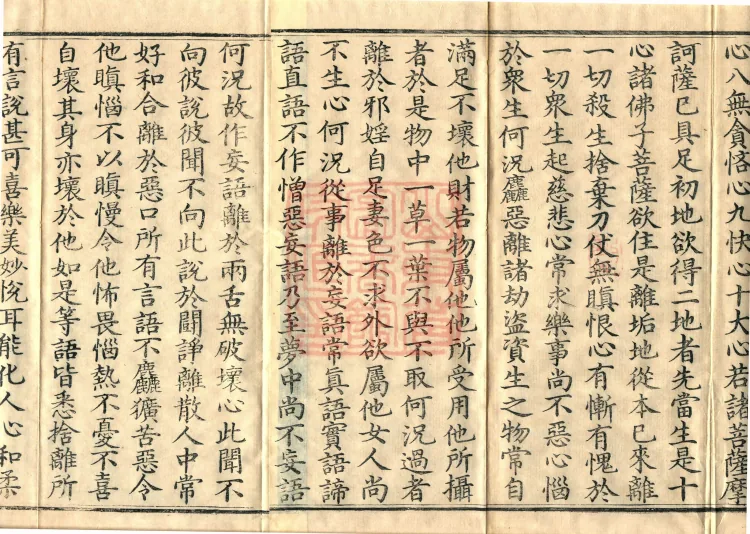 心八無貪悋心九快心十大心若諸菩薩摩
訶薩已具足初地欲得二地者先當生是十
心諸佛子菩薩欲住是離垢地從本已來離
一切殺生捨棄刀仗無瞋恨心有慚有愧於
一切衆生起慈悲心常求樂事尚不惡心惱
於衆生何況麤惡離諸劫盜資生之物常自
滿足不壞他財若物屬他他所受用他所攝
者於是物中一草一葉不與不取何況過者
離於邪婬自足妻色不求外欲屬他女人尚
不生心何況從事離於妄語常眞語實語諦
語直語不作憎惡妄語乃至夢中尚不妄語
何況故作妄語離於兩舌無破壞心此聞不
向彼說彼聞不向此說於鬪諍離散人中常
好和合離於惡口所有言語不麤獷苦惡令
他瞋惱不以瞋慢令他怖畏惱熱不憂不喜
自壞其身亦壞於他如是等語皆悉捨離所
有言說甚可喜樂美妙悅耳能化人心和柔